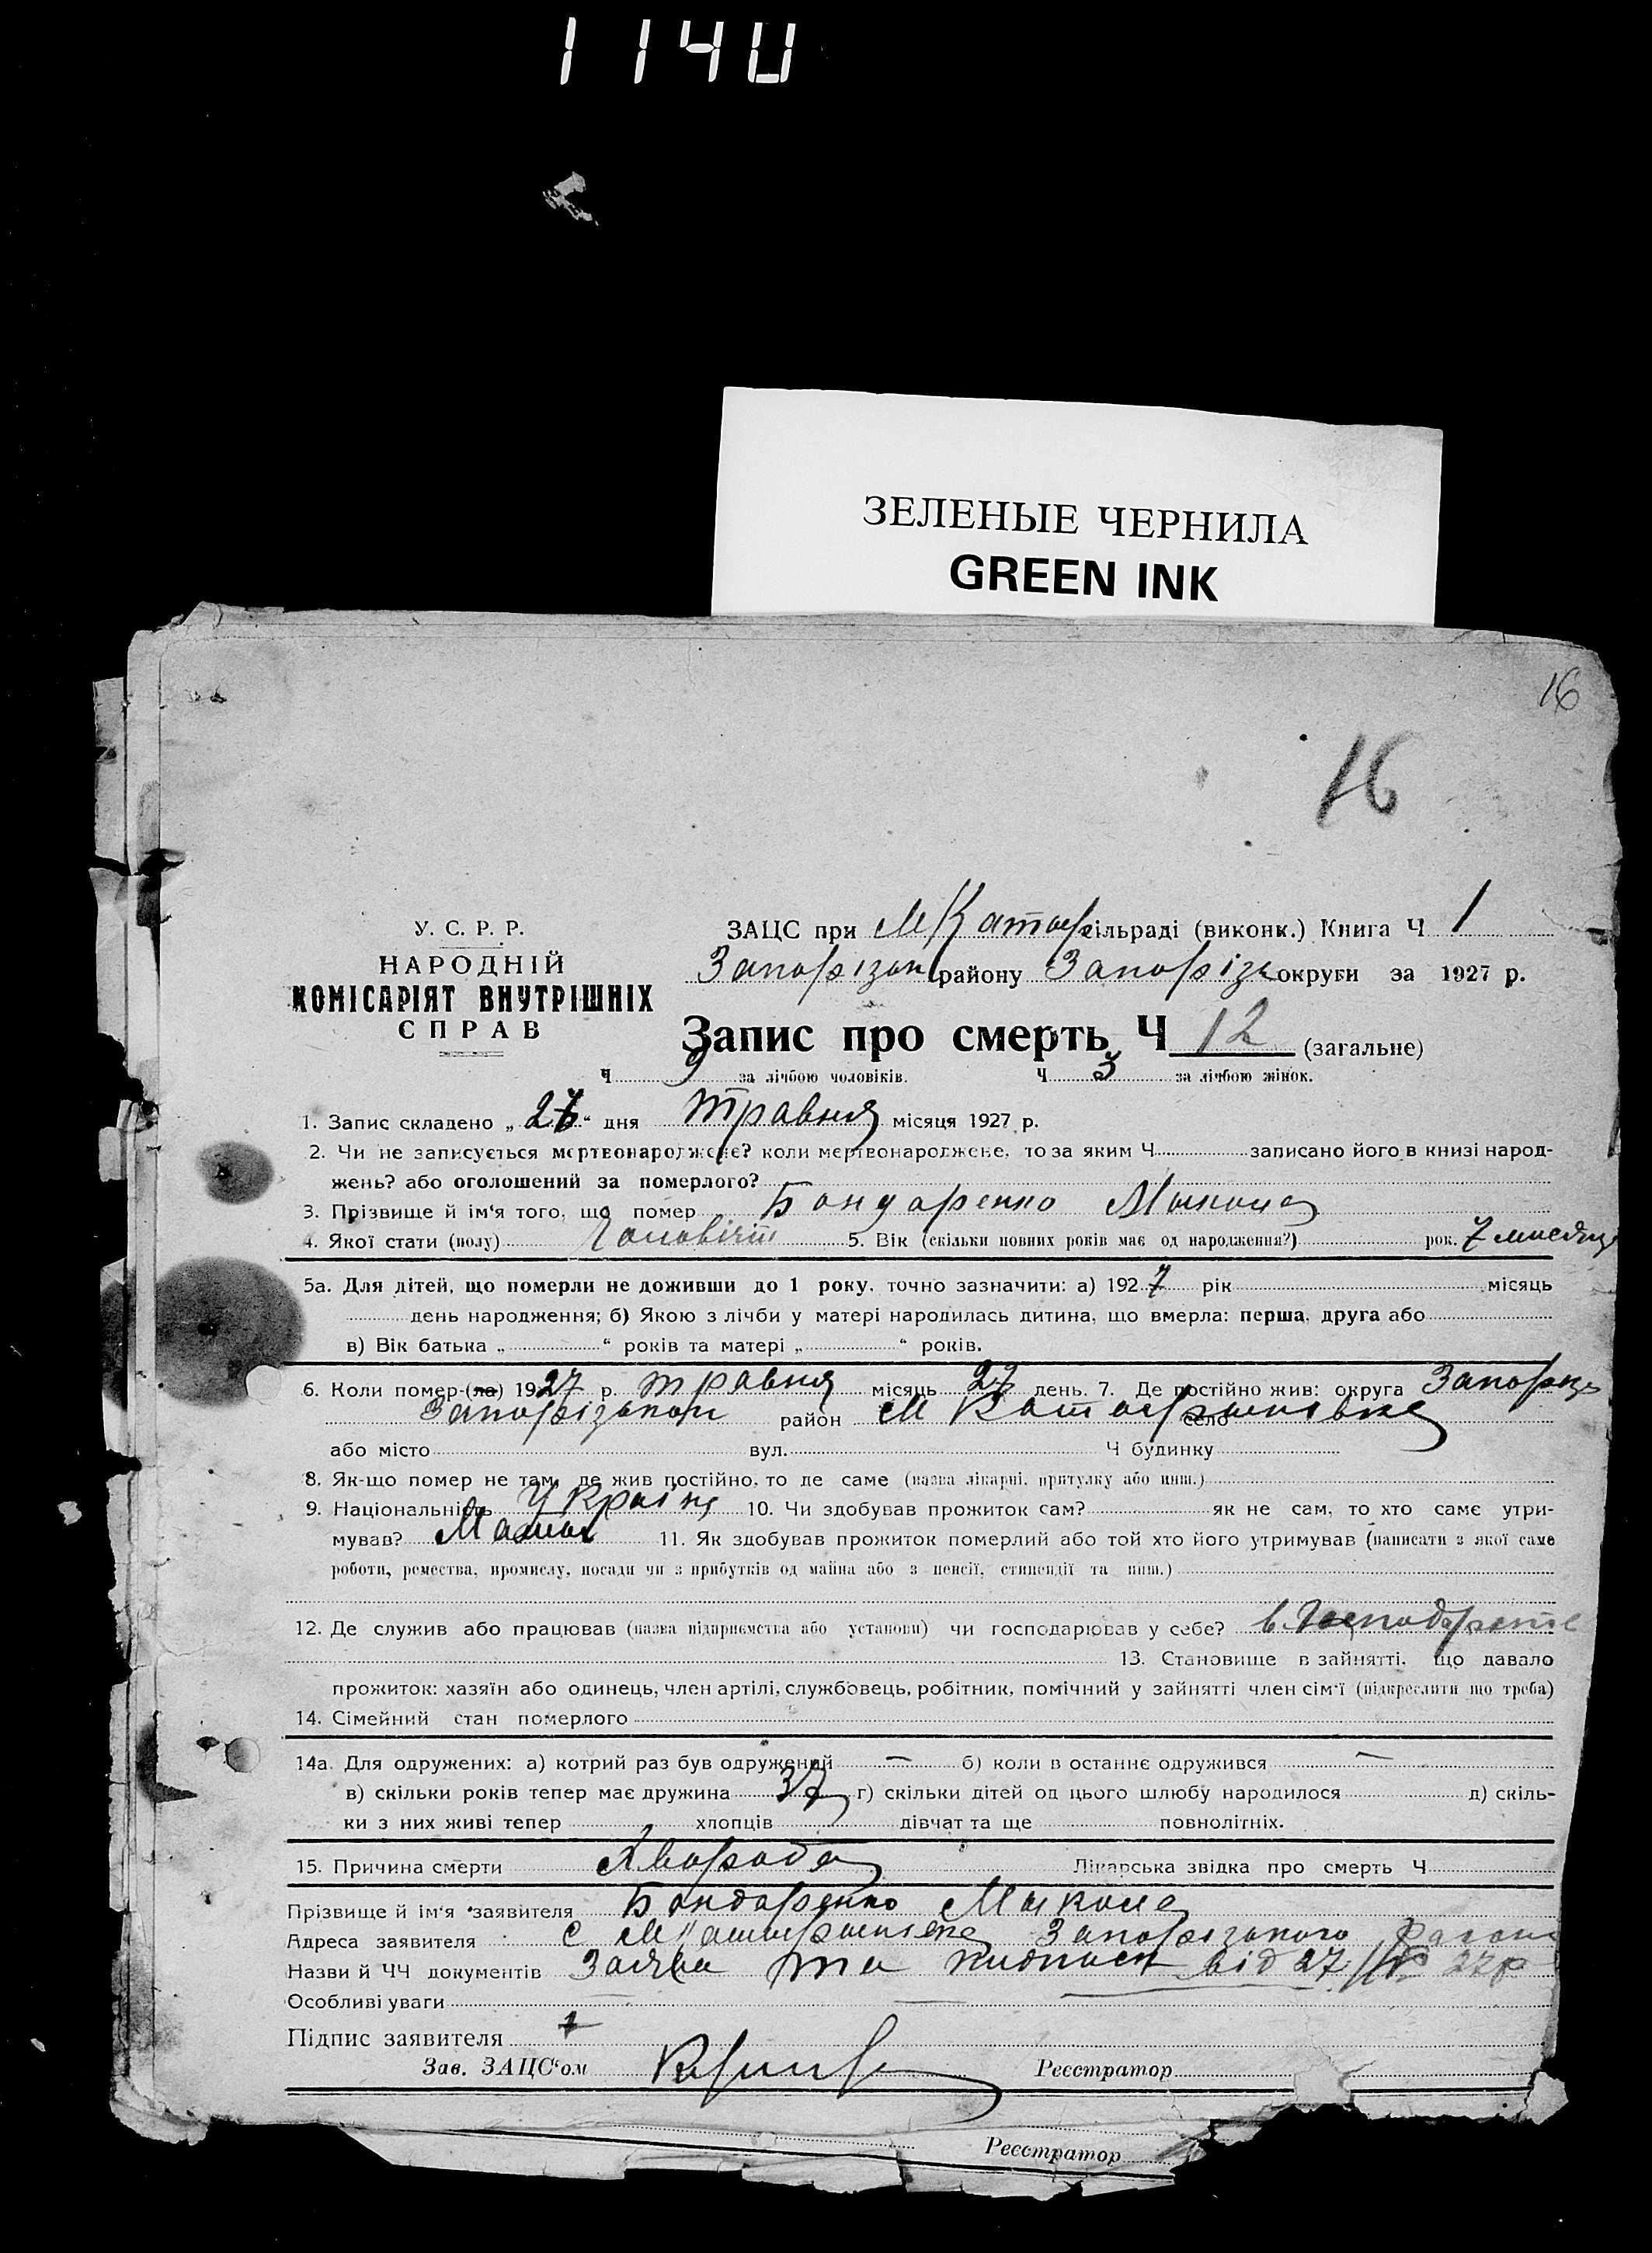 1140
ЗЕЛЕНЫЕ ЧЕРНИЛА
GREEN INK
16
16
У. С. Р. Р.
НАРОДНІЙ
КОМІСАРІЯТ ВНУТРІШНІХ
СПРАВ
ЗАЦС при сільраді (виконк.) Книга Ч 1
району округи за 1927 р.
Запис про смерть Ч 12 (загальне)
Ч 9 за лічбою чоловіків. Ч 3 за лічбою жінок.
1. Запис складено „ “ дня травня місяця 1927 р.
2. Чи не записується мертвонароджене? коли мертвонароджене, то за яким Ч записано його в книзі народ-
жень? або оголошений за померлого?
3. Прізвище й ім'я того, що помер Бондаренко Микола
4. Якої стати (полу) 5. Вік (скільки повних років має од народження?) рок. 7
5а. Для дітей, що померли не доживши до 1 року, точно зазначити: а) 1927 рік місяць
день народження; б) Якою з лічби у матері народилась дитина, що вмерла: перша, друга або
в) Вік батька „ “ років та матері „ “ років.
6. Коли помер-(ла) 1927 р. травня місяць 27 день. 7. Де постійно жив: округа
район село
або місто вул. Ч будинку
8. Як-що помер не там, де жив постійно, то де саме (назва лікарні, притулку або инш.)
9. Національність 10. Чи здобував прожиток сам? як не сам, то хто саме утри-
мував? 11. Як здобував прожиток померлий або той хто його утримував (написати з якої саме
роботи, ремества, промислу, посади чи з прибутків од майна або з пенсії, стипендії та инш.)
12. Де служив або працював (назва підприємства або установи) чи господарював у себе?
13. Становище в зайнятті, що давало
прожиток: хазяїн або одинець, член артілі, службовець, робітник, помічний у зайнятті член сім'ї (підкреслити що треба)
14. Сімейний стан померлого
14а. Для одружених: а) котрий раз був одружений — б) коли в останнє одружився —
в) скільки років тепер має дружина г) скільки дітей од цього шлюбу народилося д) скіль-
ки з них живі тепер хлопців дівчат та ще повнолітніх.
15. Причина смерти Хвороба Лікарська звідка про смерть Ч
Прізвище й ім'я заявителя Бондаренко Микола
Адреса заявителя с
Назви й ЧЧ документів Заява та від 27/V 27р
Особливі уваги
Підпис заявителя
Зав. ЗАЦС'ом Реєстратор
Реєстратор